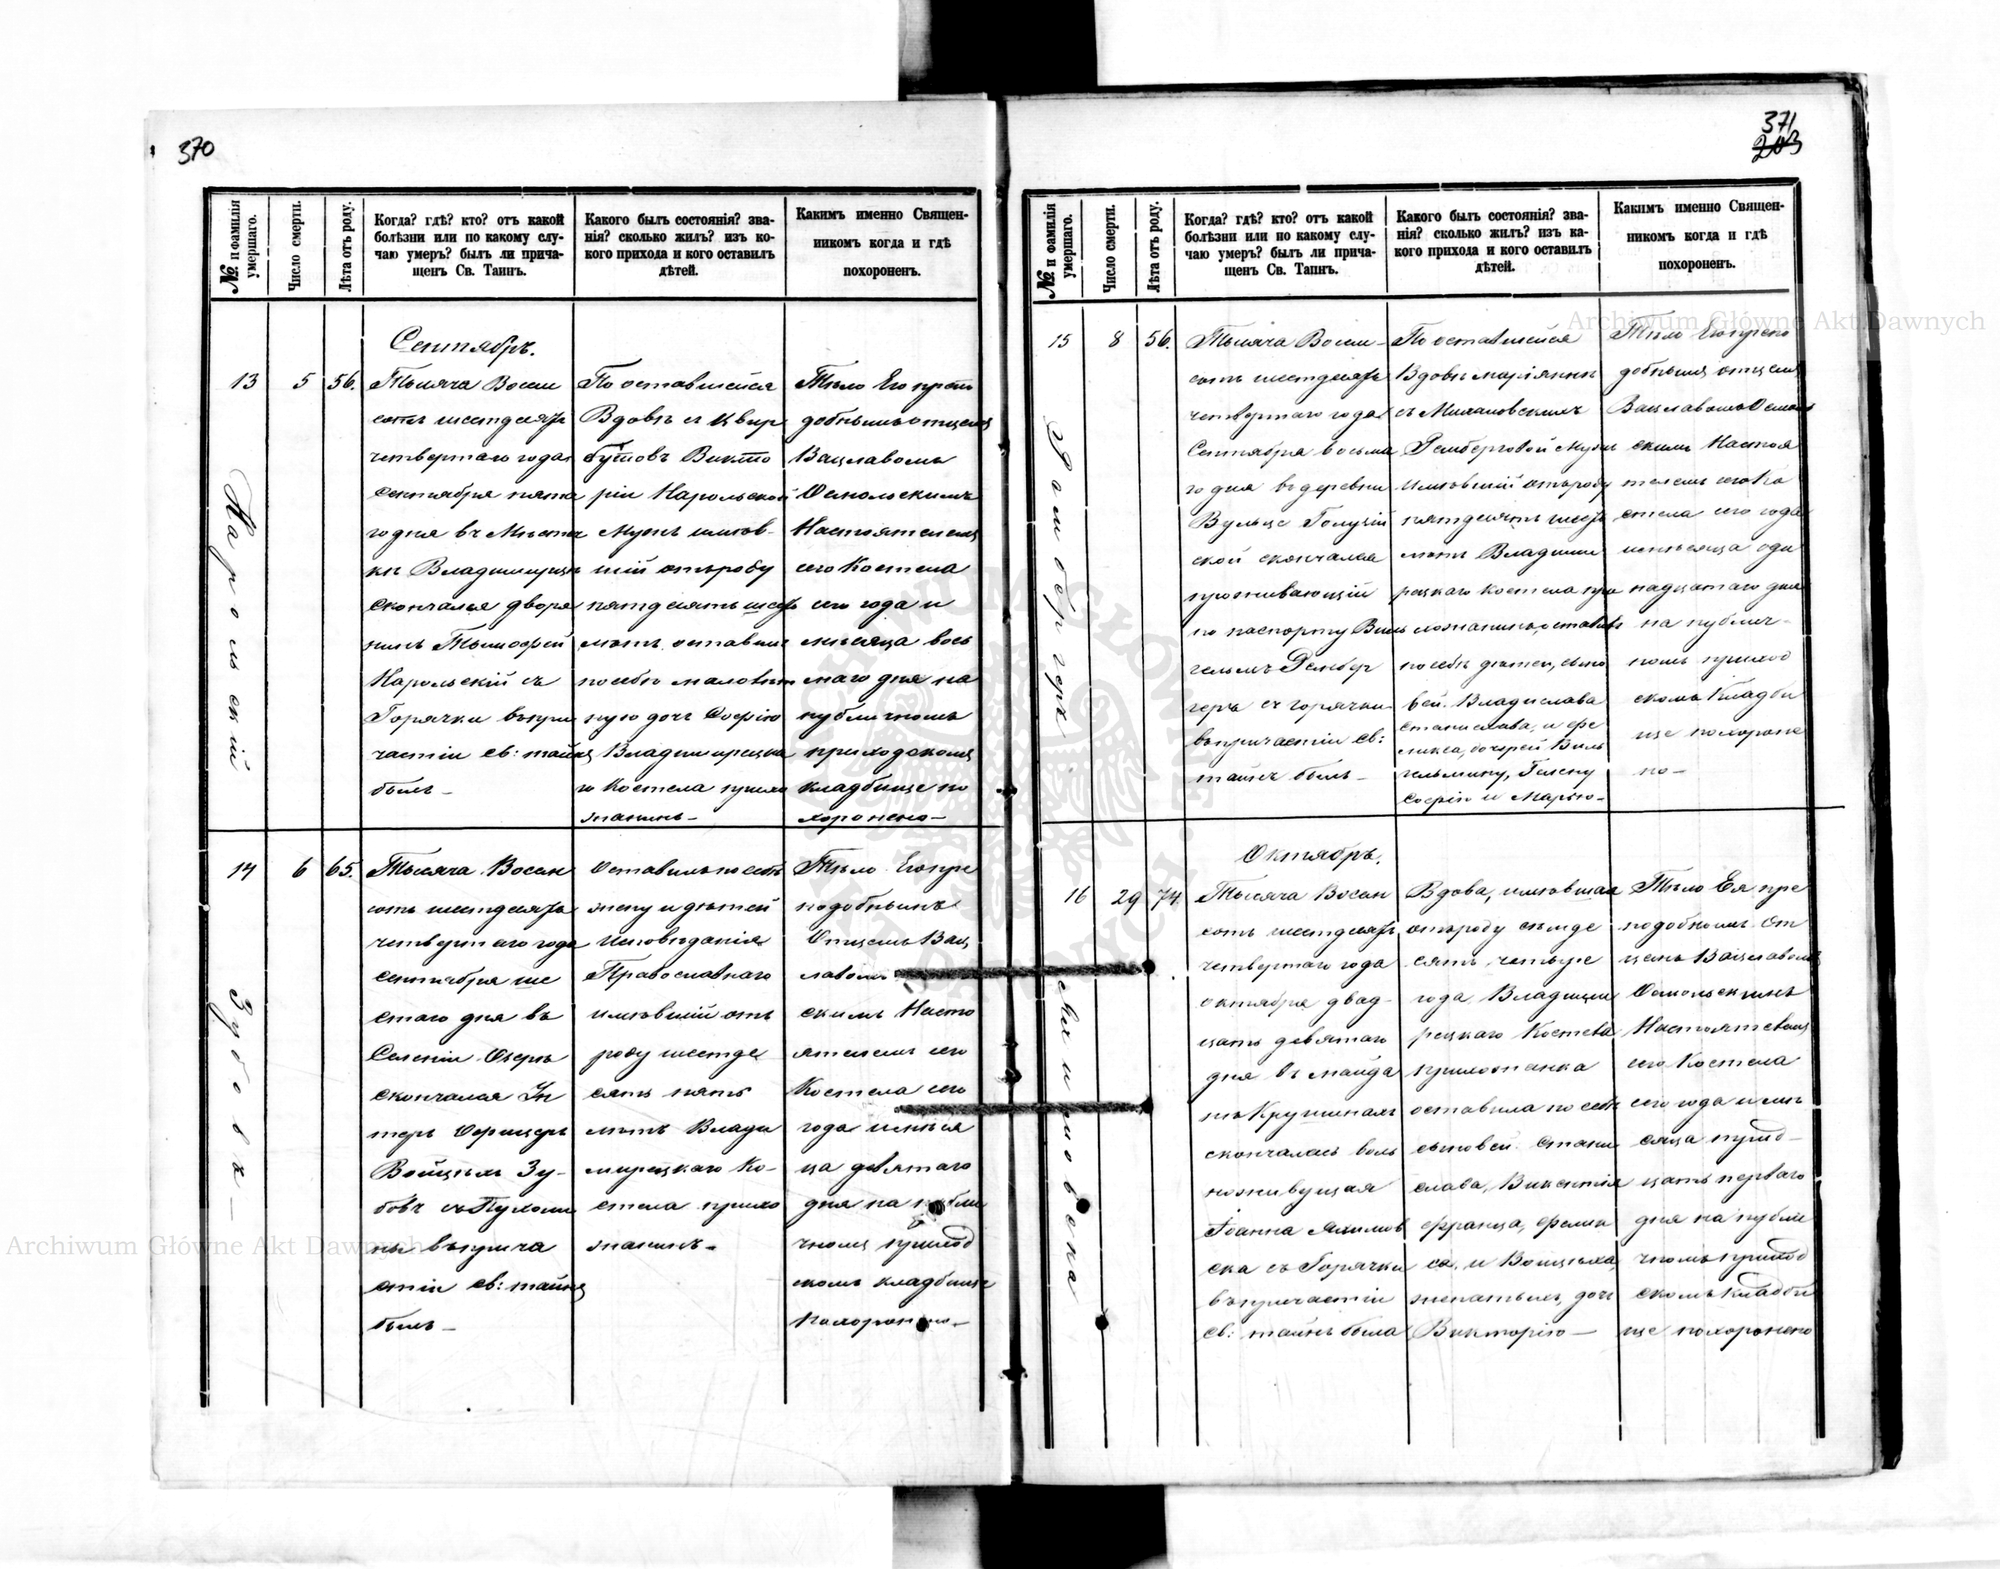 370
№ и фамилія умершаго.
Число смерти.
Лѣта отъ роду.
Когда? гдѣ? кто? отъ какой
болѣзни или по какому слу-
чаю умеръ? былъ ли прича-
щенъ Св. Таинъ.
Какого былъ состоянія? зва-
нія? сколько жилъ? изъ ка-
кого прихода и кого оставилъ
дѣтей.
Какимъ именно Священ-
никомъ когда и гдѣ
похороненъ.
Сентябрь.
13
Карольскій
5
56.
Тысяча Восем
сотъ шестдесятъ
четвертаго года
сентября пята
го дня въ Мѣстеч
кѣ Владимирцѣ
скончался дворя
нинъ Тимофей
Карольскій съ
Горячки въ при
частіи св: тайнъ
былъ —
По оставшейся
Вдовѣ съ Цвир
бутовъ Викто
ріи Карольской
Мужъ имѣв-
шій отъ роду
пятдесятъ шесть
лѣтъ оставил
по себѣ малолѣт
ную дочь Софію
Владимирецка
го Костела прихо
жанинъ —
Тѣло Его преп
добнымъ отцемъ
Вацлавомъ
Осмольскимъ
Настоятелемъ
сего Костела
сего года и
мѣсяца вось
маго дня на
публичномъ
приходскомъ
кладбище по
хоронено —
14
Зубовъ —
6
65.
Тысяча Восем
сотъ шестдесятъ
четвертаго года
сентября ше
стаго дня въ
Селеніи Озеръ
скончался Ун
теръ Офицеръ
Войцѣхъ Зу-
бовъ съ Пухли
ны въ прича
стіи св: тайнъ
былъ —
Оставилъ по себѣ
жену и дѣтей
исповѣданія
Православнаго
имѣвшій отъ
роду шестде
сятъ пять
лѣтъ Влади
мирецкаго Ко-
стела прихо
жанинъ —
Тѣло Его пре
подобнымъ
Отцемъ Вац
лавомъ
скимъ Насто
ятелемъ сего
Костела сего
года и мѣся
ца девятаго
дня на публи
чномъ приход
скомъ кладбище
похоронено —
371
203
№ и фамилія умершаго.
Число смерти.
Лѣта отъ роду.
Когда? гдѣ? кто? отъ какой
болѣзни или по какому слу-
чаю умеръ? былъ ли прича-
щенъ Св. Таинъ.
Какого былъ состоянія? зва-
нія? сколько жилъ? изъ ка-
кого прихода и кого оставилъ
дѣтей.
Какимъ именно Священ-
никомъ когда и гдѣ
похороненъ.
15
8
56.
Тысяча Восем-
сотъ шестдесятъ
четвертаго года
Сентября восьма
го дня въ деревни
Вульце
ской скончался
проживающій
по паспорту Виль
гельмъ Рембер
геръ съ горячки
въ причастіи св:
тайнъ былъ —
По оставшейся
Вдовѣ Маріяннѣ
съ Михаловскихъ
Ремберговой Мужъ
имѣвшій отъ роду
пятдесятъ шесть
лѣтъ Владими
рецкаго костела при
хожанинъ, оставилъ
по себѣ дѣтей, сыно
вей. Владислава
Станислава, и Фе
ликса, дочерей Виль
гельмину, Гелену
Софію и Марію —
Тѣло Его препо
добнымъ отцемъ
Вацлавомъ Осмоль
скимъ Настоя
телемъ сего Ко
стела сего года
и мѣсяца оди
надцатаго дня
на публич-
номъ приход
скомъ Кладби
ще похороне
но —
Октябрь.
16
29
74.
Тысяча Восем
сотъ шестдесятъ
четвертаго года
октября двад-
цать девятаго
дня въ Майда
нѣ Крушинахъ
скончалась воль
ноживущая
Іоанна Яхимов
ска съ Горячки
въ причастіи
св: тайнъ была
Вдова, имѣвшая
отъ роду семде
сятъ четыре
года Владими
рецкаго Костела
прихожанка
оставила по себѣ
сыновей. Стани
слава, Викентія
Франца, Фелик
са, и Войцѣха,
женатыхъ, дочь
Викторію —
Тѣло Ея пре
подобномъ От
цемъ Вацлавомъ
Осмольскимъ
Настоятелемъ
сего Костела
сего года и мѣ
сяца трид-
цать перваго
дня на публи
чномъ приход
скомъ кладби
ще похоронено
Archiwum Główne Akt Dawnych
Archiwum Główne Akt Dawnych